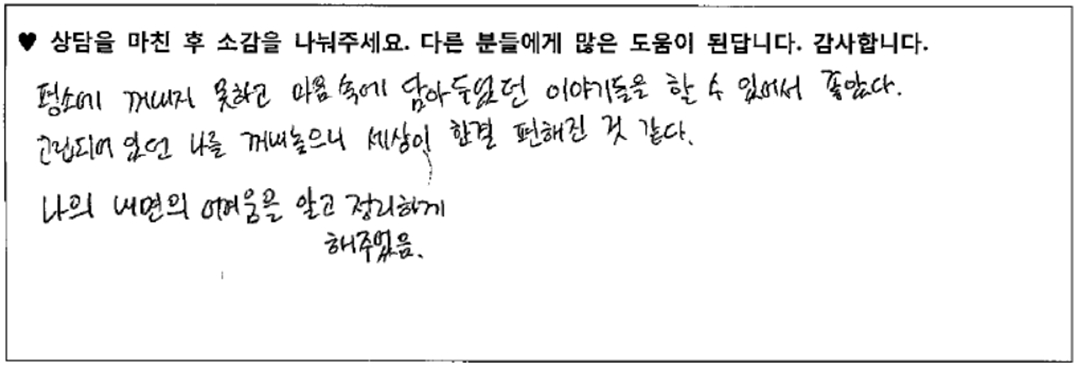 ♥ 상담을 마친 후 소감을 나눠주세요. 다른 분들에게 많은 도움이 된답니다. 감사합니다.
평소에 꺼내지 못하고 마음 속에 담아두었던 이야기들을 할 수 있어서 좋았다.
고립되어 있던 나를 꺼내놓으니 세상이 한결 편해진 것 같다.
나의 내면의 어려움을 알고 정리하게
해주었음.